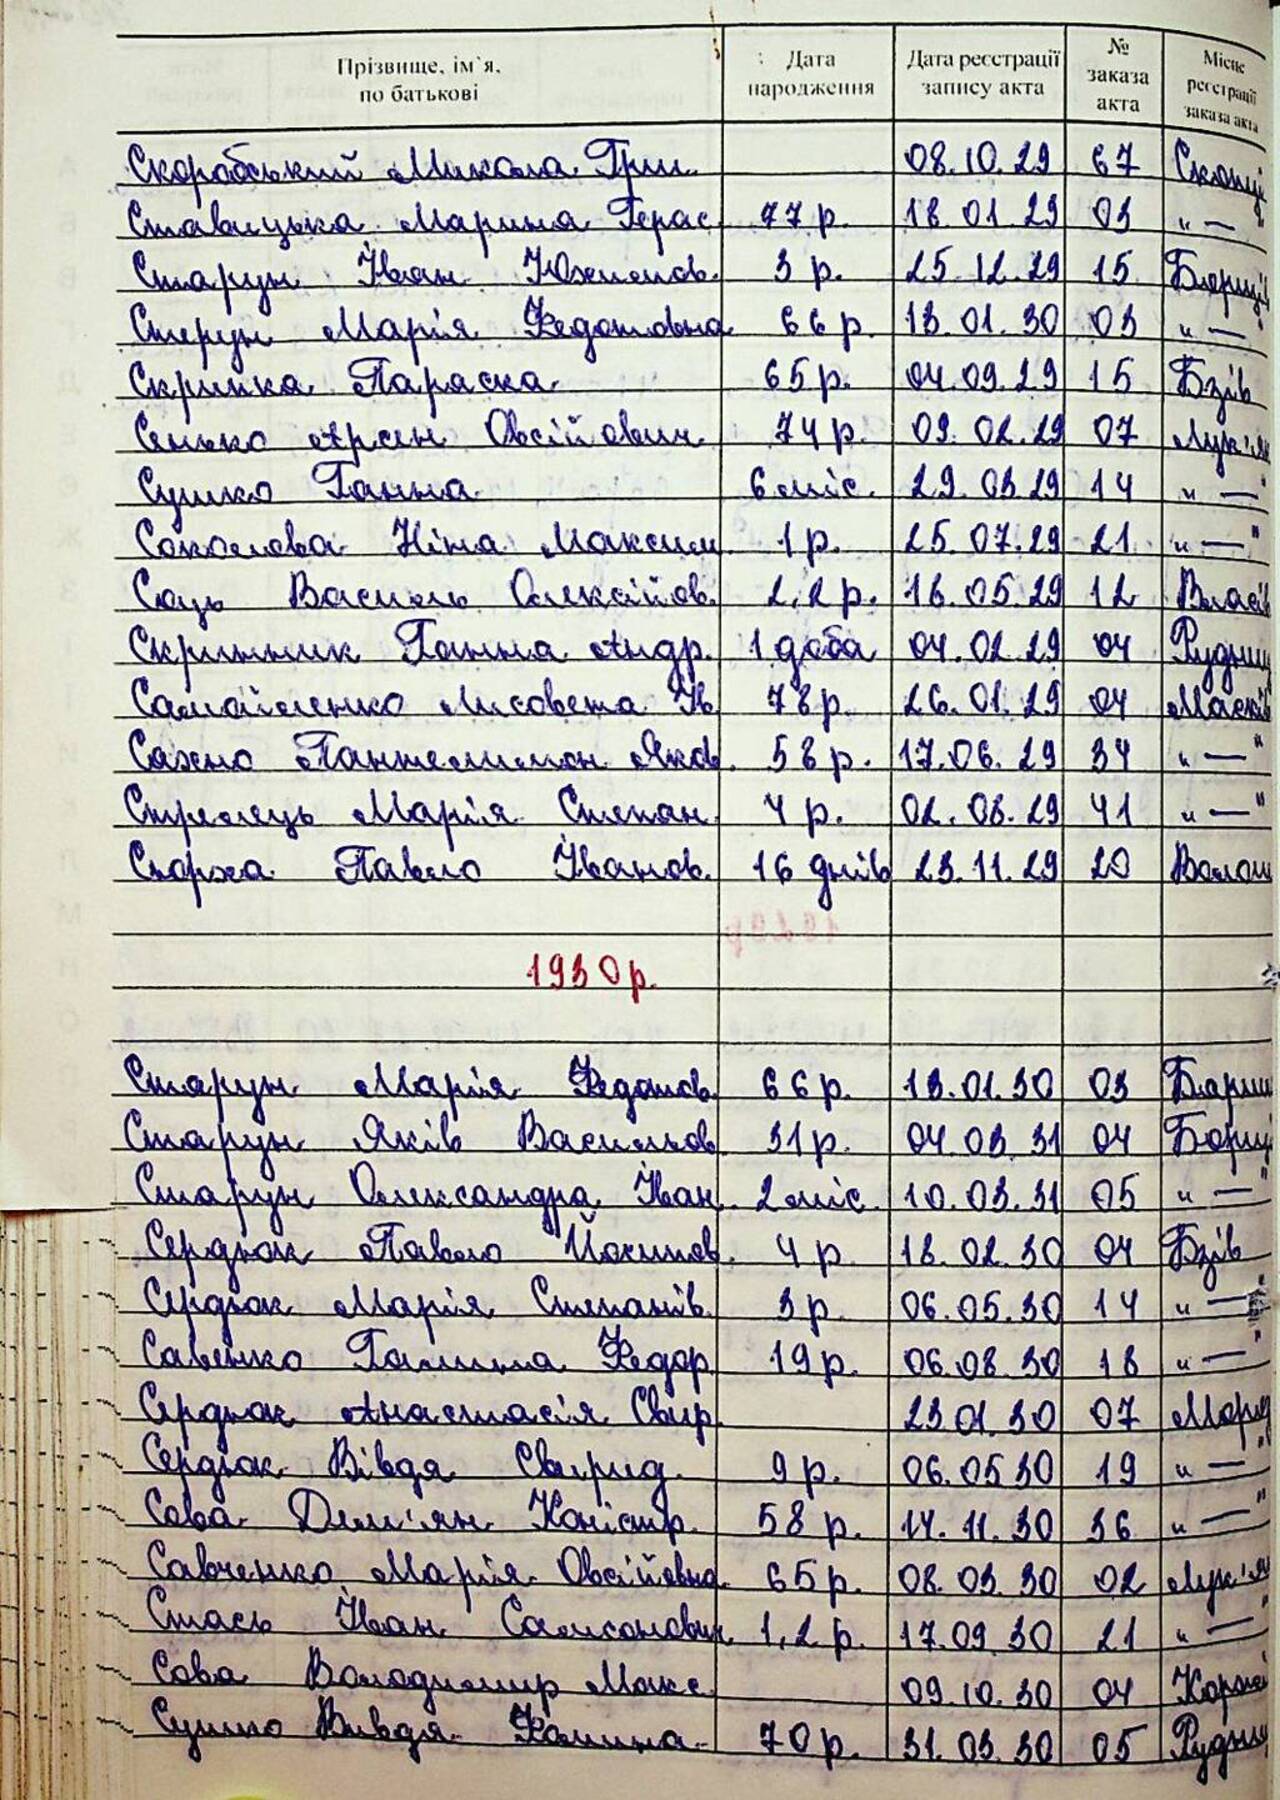 Прізвище, ім`я, по батькові Дата народження Дата реєстрації запису акта № заказа акта Місце реєстрації заказа акта
Скорабський Микола Гри. 08.10.29 67 Скопці
Ставицька Марина Герас. 77 р. 18.01.29 03 „ — "
Старун Іван Юхимов. 3 р. 25.12.29 15
Старун Марія Федотовна 66 р. 13.01.30 03 „ — "
Скрипка Параска 65 р. 04.09.29 15 Бзів
Сенько Арсен Овсійович 74 р. 09.02.29 07 Лук'ян
Сушко Ганна 6 міс. 29.03.29 14 „ — "
Соколова Ніна Максим 1 р. 25.07.29 21 „ — "
Василь Олексійов. 2,2 р. 16.05.29 12 Власів
Скринник Ганна Андр. 1 доба 04.02.29 04 Рудниц
Самойленко Лисовета Ів. 78 р. 26.01.29 04 Масків
Сахно Пантелимон Яков. 58 р. 17.06.29 34 „ — "
Стрелець Марія Степан. 4 р. 02.08.29 41 „ — "
Павло Іванов. 16 днів 23.11.29 20 Волош
1930 р.
Старун Марія Федотов. 66 р. 13.01.30 03 Бориш
Старун Яків Васильов. 31 р. 04.03.31 04 Борищ
Старун Олександра Іван. 2 міс. 10.03.31 05 „ — "
Сердюк Павло Йосипов. 4 р. 18.02.30 04 Бзів
Сердюк Марія Степанів. 3 р. 06.05.30 14 „ — "
Савенко Галина Федор. 19 р. 06.08.30 18 „ — "
Сердюк Анастасія Свир. 23.01.30 07
Сердюк Вівдя Свирид. 9 р. 06.05.30 19 „ — "
Сова Дем'ян Каністр. 58 р. 14.11.30 36 „ — "
Савченко Марія Овсійовна 65 р. 08.03.30 02 Лук'ян
Стась Іван Самсонович 1,2 р. 17.09.30 21 „ — "
Сова Володимир Макс. 09.10.30 04 Коржі
Сушко Вивдя Калина. 70 р. 31.03.30 05 Рудниц